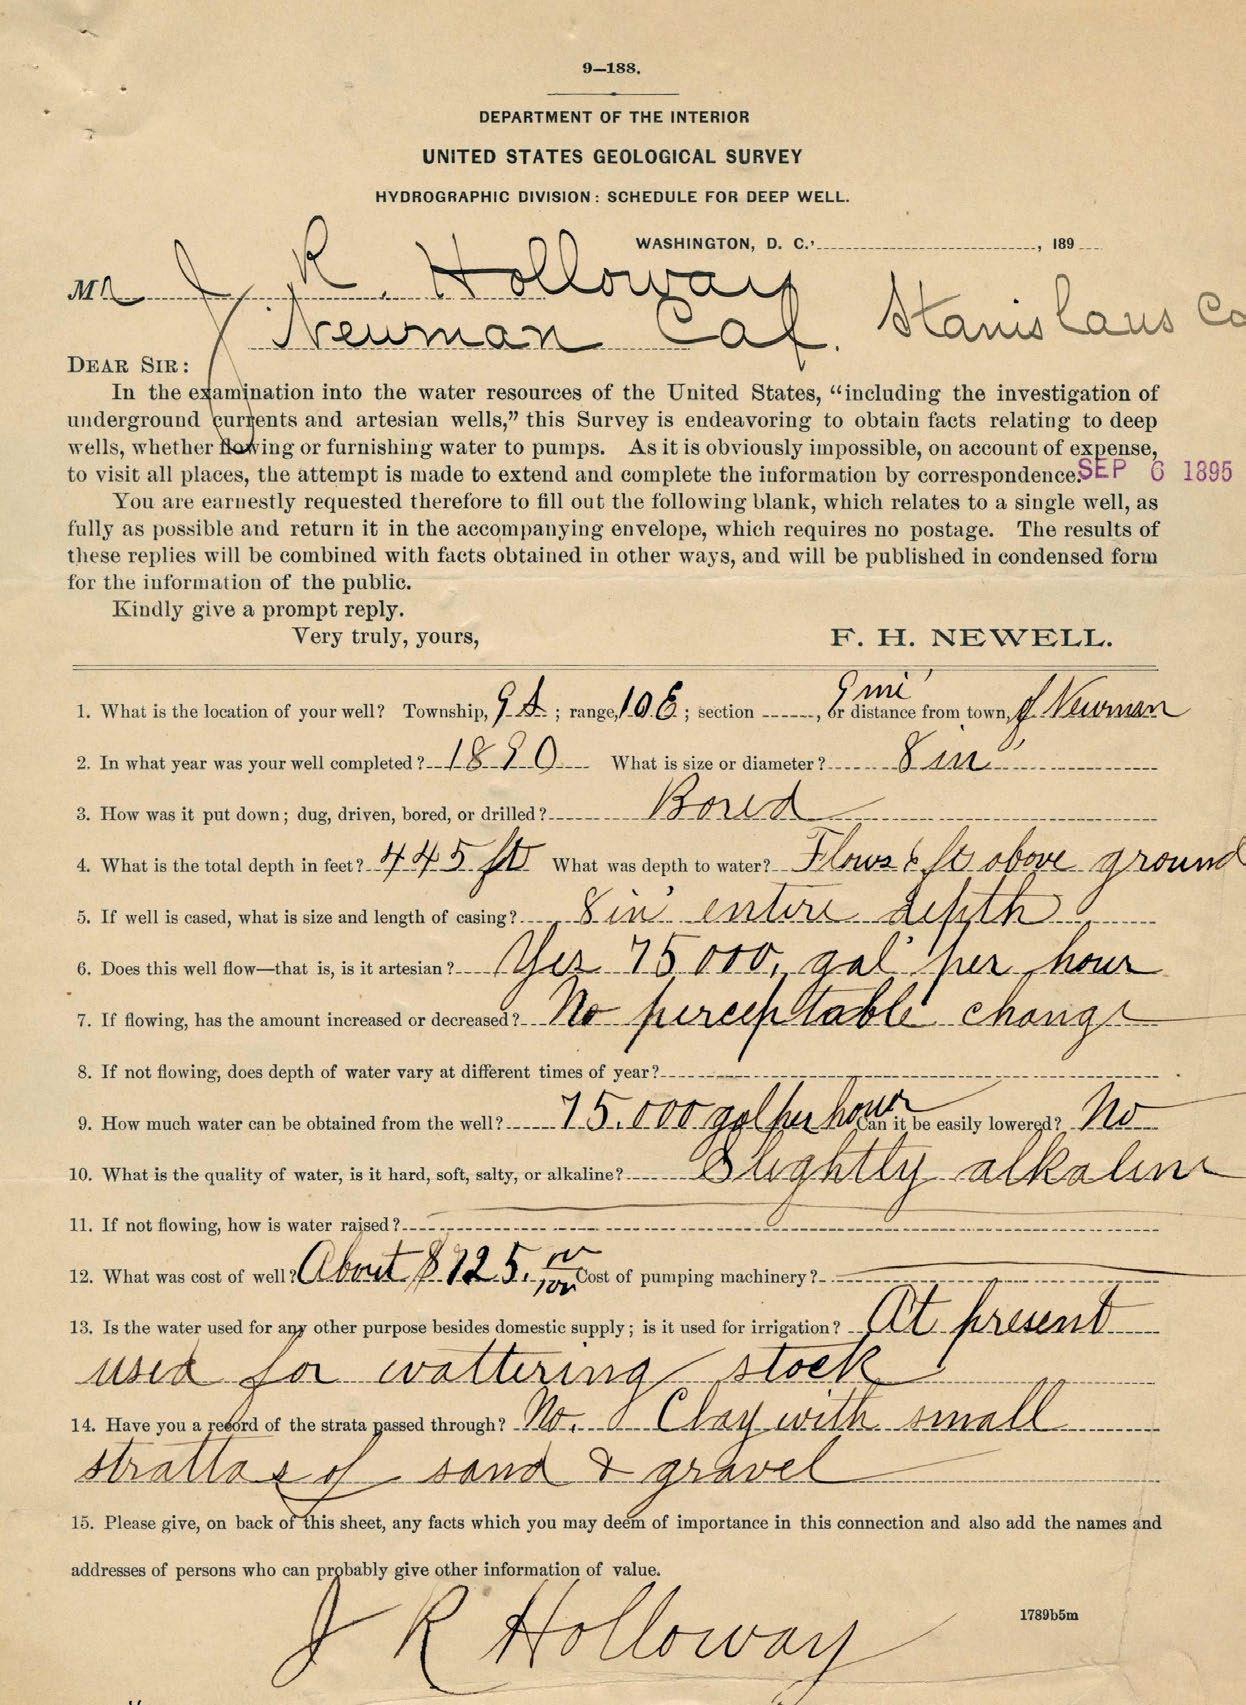 9—188.
DEPARTMENT OF THE INTERIOR
UNITED STATES GEOLOGICAL SURVEY
HYDROGRAPHIC DIVISION: SCHEDULE FOR DEEP WELL.
WASHINGTON, D. C., , 189
Mr J R. Holloway
Newman Cal. Stanislaus Co
DEAR SIR:
In the examination into the water resources of the United States, “including the investigation of
underground currents and artesian wells,” this Survey is endeavoring to obtain facts relating to deep
wells, whether flowing or furnishing water to pumps. As it is obviously impossible, on account of expense,
to visit all places, the attempt is made to extend and complete the information by correspondence. SEP 6 1895
You are earnestly requested therefore to fill out the following blank, which relates to a single well, as
fully as possible and return it in the accompanying envelope, which requires no postage. The results of
these replies will be combined with facts obtained in other ways, and will be published in condensed form
for the information of the public.
Kindly give a prompt reply.
Very truly, yours, F. H. NEWELL.
1. What is the location of your well? Township, 9 S. ; range, 10 E ; section , or distance from town, 9 mi' of Newman
2. In what year was your well completed? 1890 What is size or diameter? 8 in'
3. How was it put down; dug, driven, bored, or drilled? Bored
4. What is the total depth in feet? 445 ft What was depth to water? Flows ft above ground
5. If well is cased, what is size and length of casing? 8 in' entire depth
6. Does this well flow—that is, is it artesian? Yes 75 000, gal' per hour
7. If flowing, has the amount increased or decreased? No perceptable change
8. If not flowing, does depth of water vary at different times of year?
9. How much water can be obtained from the well? 75.000 gal per hour Can it be easily lowered? No
10. What is the quality of water, is it hard, soft, salty, or alkaline? Slightly alkaline
11. If not flowing, how is water raised?
12. What was cost of well? About $725. 00/100 Cost of pumping machinery?
13. Is the water used for any other purpose besides domestic supply; is it used for irrigation? At present
used for wattering stock
14. Have you a record of the strata passed through? No. Clay with small
strattas of sand & gravel
15. Please give, on back of this sheet, any facts which you may deem of importance in this connection and also add the names and
addresses of persons who can probably give other information of value.
J R Holloway
1789b5m